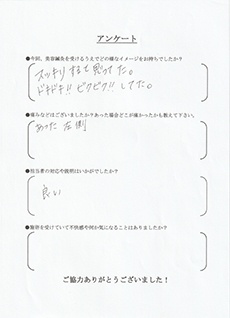 アンケート
●今回、美容鍼灸を受けるうえでどの様なイメージをお持ちでしたか？
スッキリすると思ってた。
ドキドキ!! ビクビク!! してた。
●痛みなどはございましたか？あった場合どこが痛かったかも教えて下さい。
あった 左側
●担当者の対応や説明はいかがでしたか？
良い
●施術を受けていて不快感や何か気になることはありましたか？
ご協力ありがとうございました！